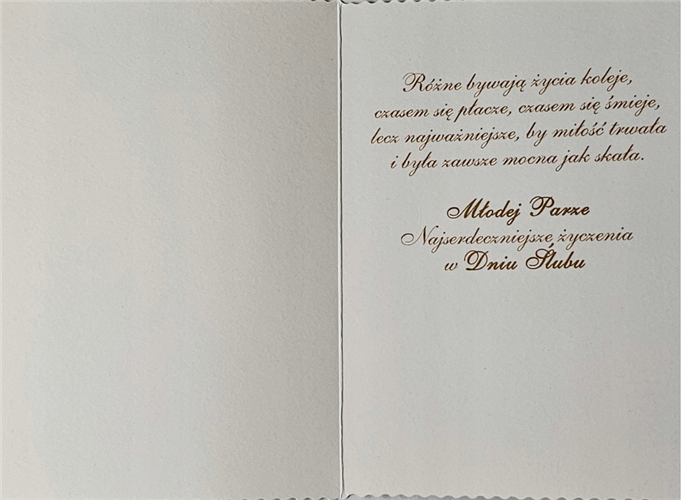 Różne bywają życia koleje,
czasem się płacze, czasem się śmieje,
lecz najważniejsze, by miłość trwała
i była zawsze mocna jak skała.
Młodej Parze
Najserdeczniejsze życzenia
w Dniu Ślubu